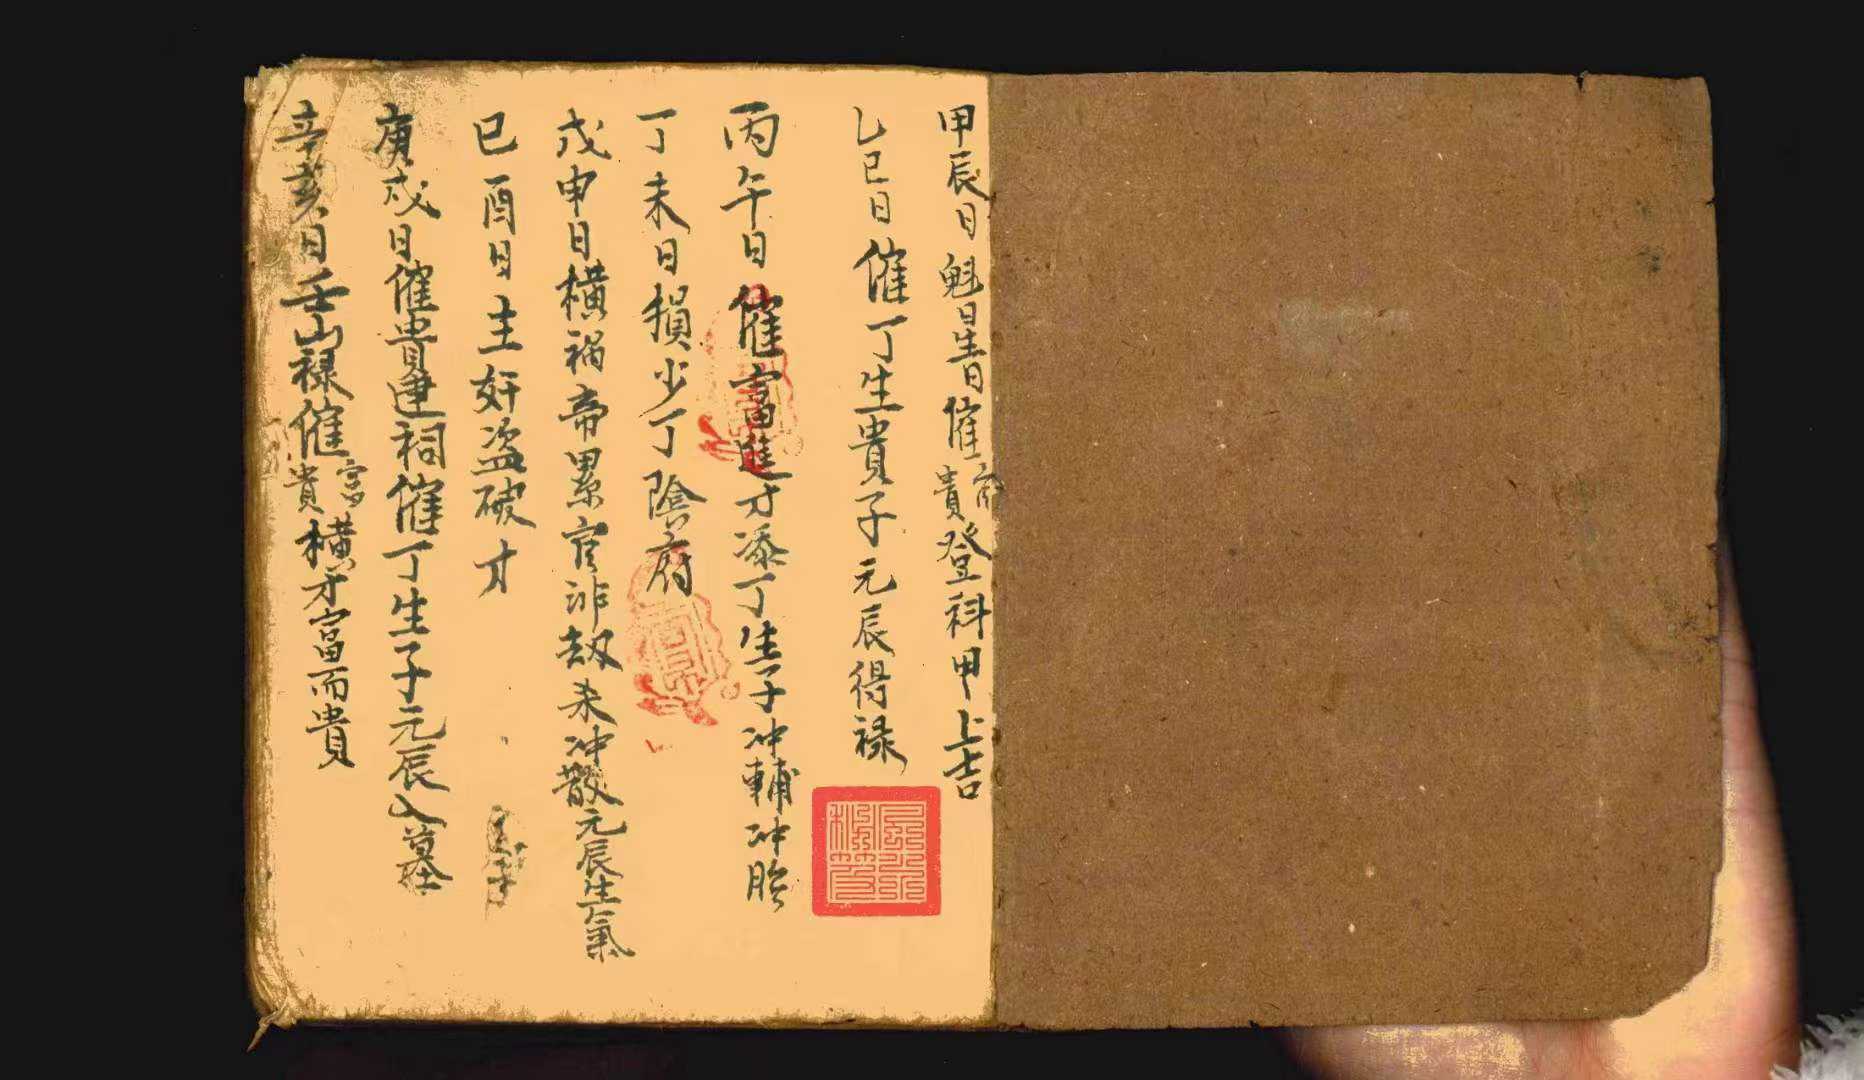 甲辰日魁星昔日催官貴登科甲上吉
乙巳日催丁生貴子元辰得祿
丙午日催富進才添丁生子冲輔冲胎
丁未日損少丁陰府
戊申日橫禍帝累官非劫未冲散元辰生氣
己酉日主奸盗破才
庚戌日催貴建祠催丁生子元辰入墓
辛亥日壬山祿催富貴橫才富而貴